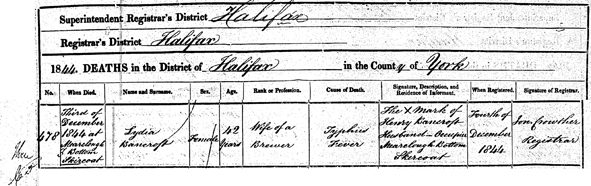 Superintendent Registrar's District Halifax
Registrar's District Halifax
1844. DEATHS in the District of Halifax in the County of York
No. When Died. Name and Surname. Sex. Age. Rank or Profession. Cause of Death. Signature, Description, and Residence of Informant. When Registered. Signature of Registrar.
478 Third of December 1844 at Bottom Skircoat
Lydia Bancroft
Female
42 Years
Wife of a Brewer
Typhus Fever
The X Mark of Henry Bancroft Husband Occupier Bottom Skircoat
Fourth of December 1844
Jon. Crowther Registrar